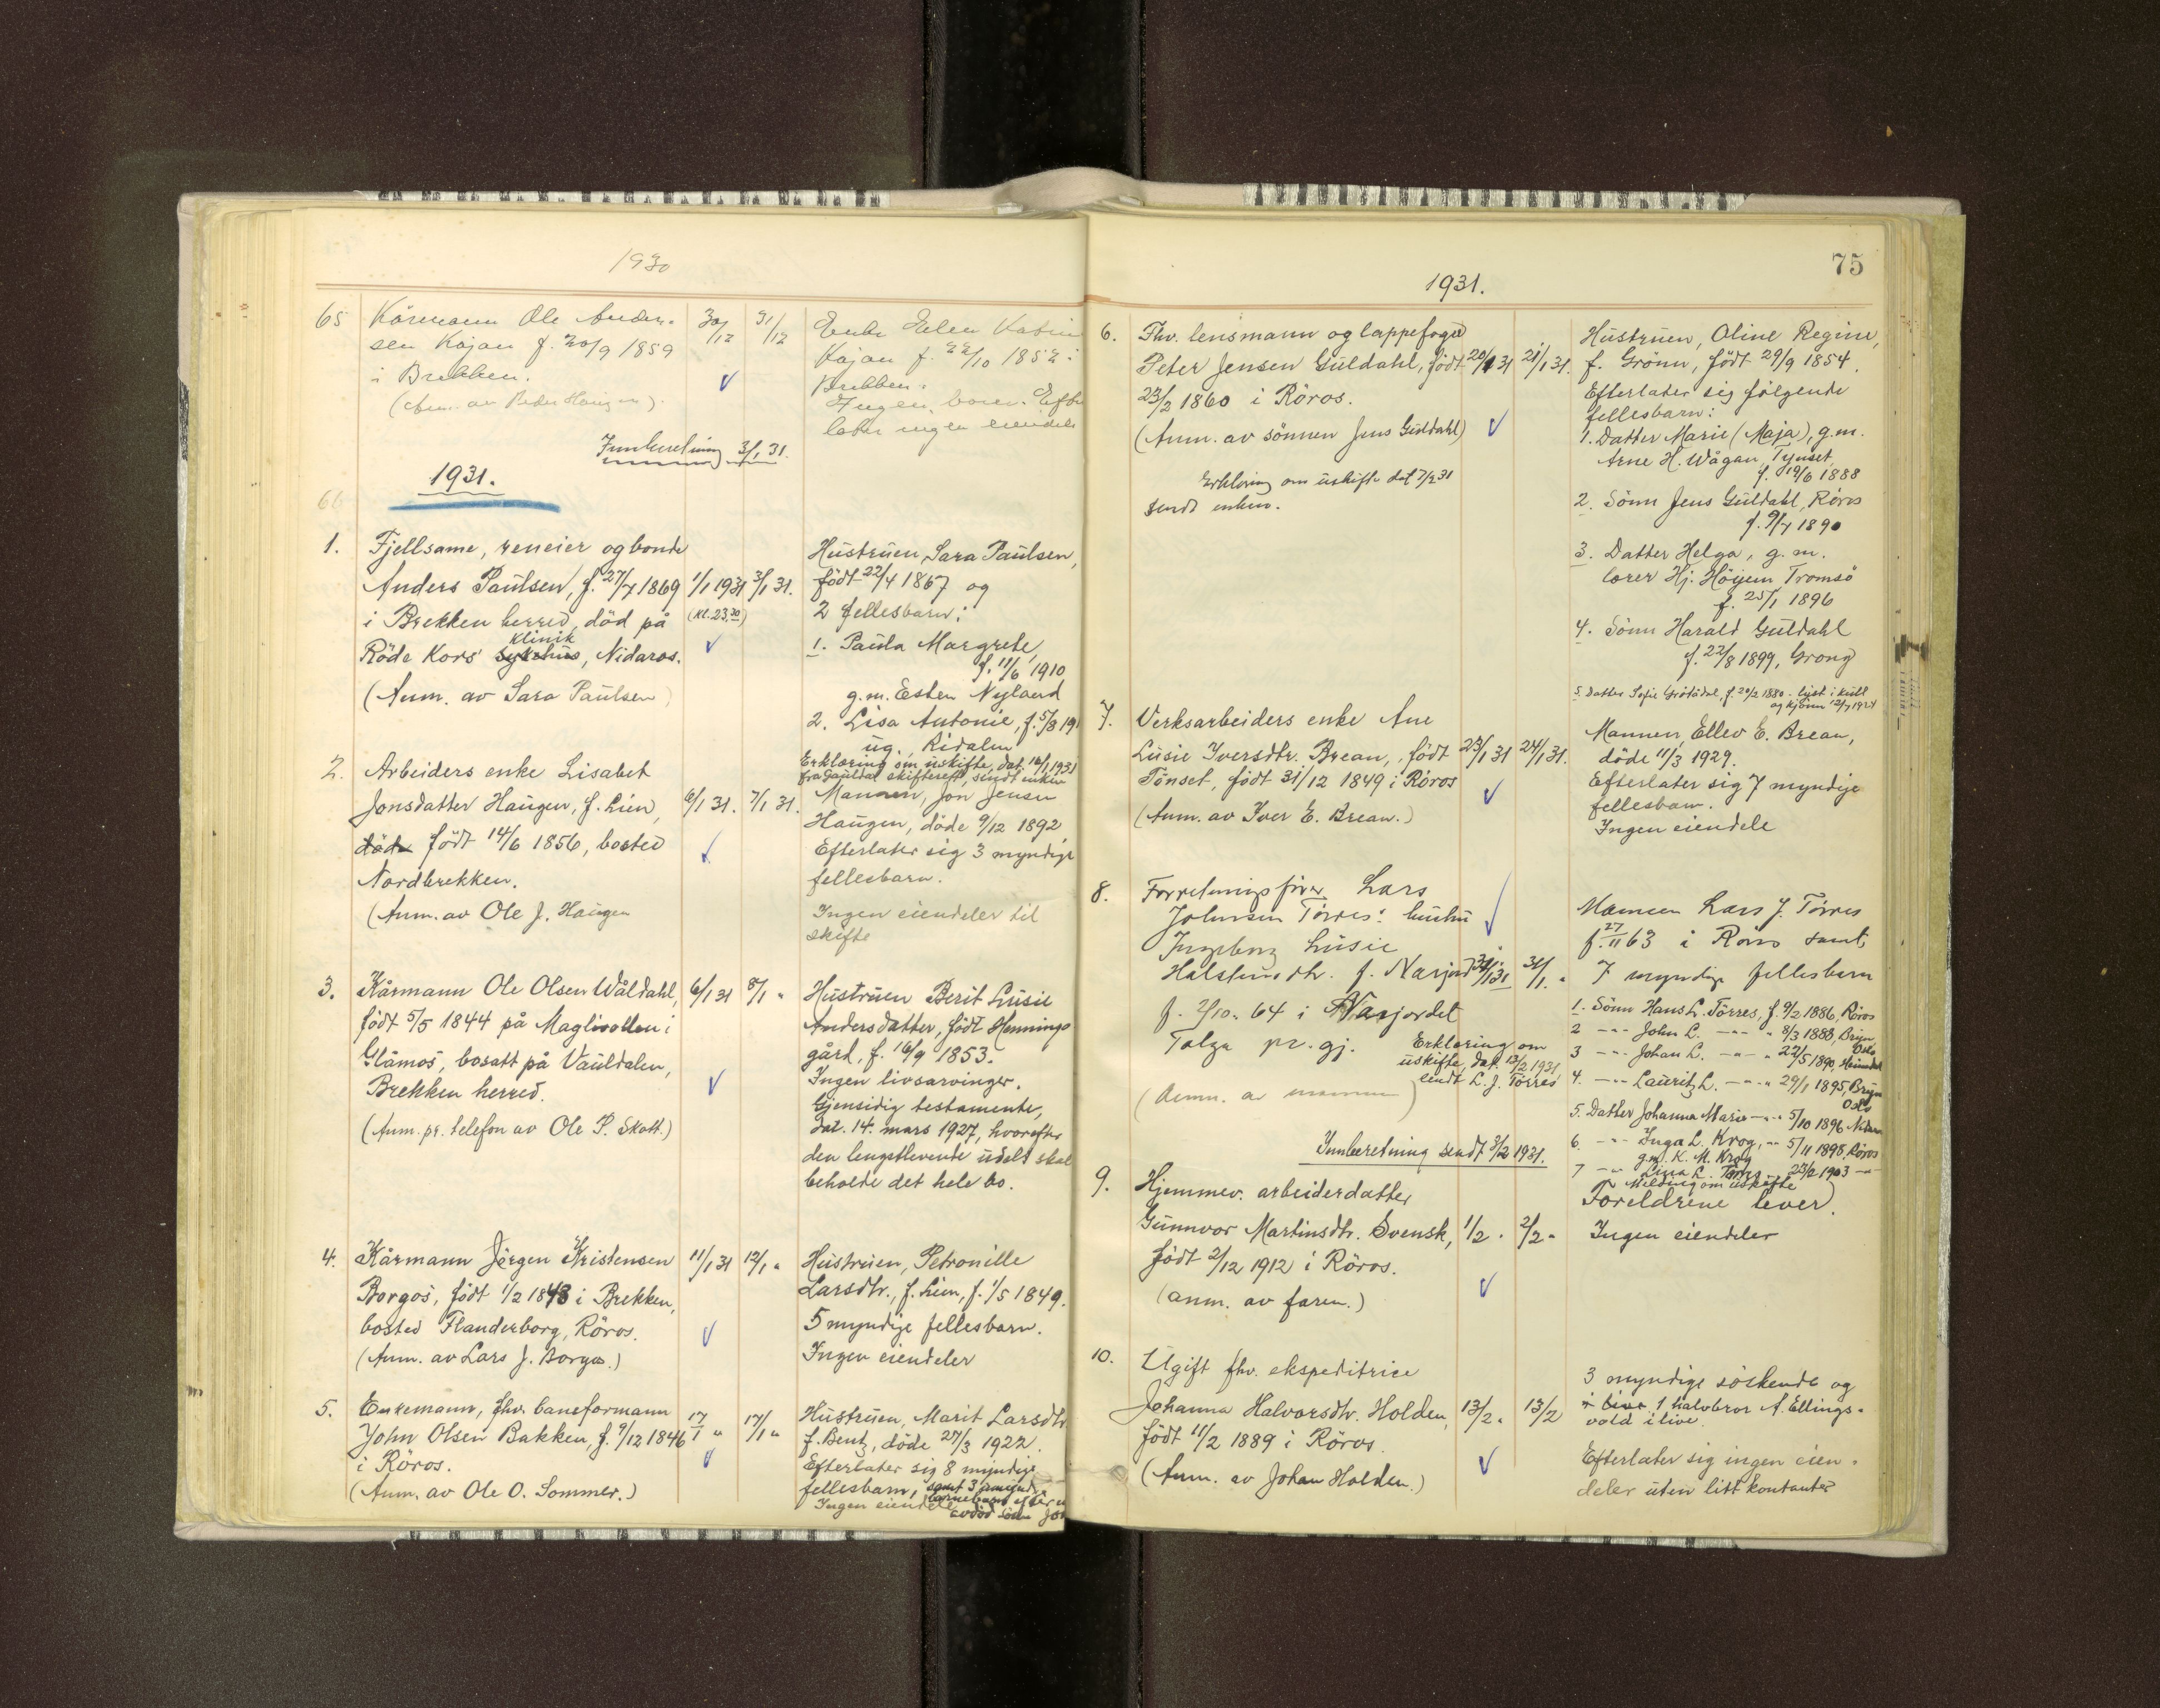 1930
65 Kårmann Ole Ander-
sen Kojan f. 20/9 1859
i Brekken.
(Anm. av Peder Haugen).
30/12 31/12
Enke Helen
Kojan f. 22/10 1852 i
Brekken.
Ingen barn. Efter
later ingen eiendele
Innberetning 3/1 31.
1931.
66
1. Fjellsame, reneier og bonde
Anders Paulsen, f. 27/7 1869
i Brekken herred, død på
Klinik
Røde Kors sykehus, Nidaros.
(Anm. av Sara Paulsen)
1/1 1931 3/1 31.
(Kl. 23.30)
Hustruen, Sara Paulsen,
født 22/4 1867 og
2 fellesbarn:
1. Paula Margrete,
f. 11/6 1910
g.m. Esten Nyland
2. Lisa Antonie, f. 5/8 19
ug., Ridalen
Erklæring om uskifte, dat. 16/1 1931
fra Gauldal skifterett, sendt enken
2. Arbeiders enke Lisabet
Jonsdatter Haugen, f. Lien,
døde født 14/6 1856, bosted
Nordbrekken.
(Anm. av Ole J. Haugen
6/1 31. 7/1 31.
Mannen, Jon Jensen
Haugen, døde 9/12 1892
Efterlater sig 3 myndige
fellesbarn.
Ingen eiendeler til
skifte
3. Kårmann Ole Olsen Wåldahl,
født 5/5 1844 på Maglivollen i
Glåmos, bosatt på Vauldalen,
Brekken herred.
(Anm. pr. telefon av Ole P. Skott.)
6/1 31 8/1 "
Hustruen Berit Lusie
Andersdatter, født Hennings
gård, f. 16/9 1853.
Ingen livsarvinger.
Gjensidig testamente,
dat. 14. mars 1927, hvorefter
den lengstlevende udelt skal
beholde det hele bo.
4. Kårmann Jørgen Kristensen
Borgos, født 1/2 1848 i Brekken,
bosted Flanderborg, Röros.
(Anm. av Lars J. Borgos.)
11/1 31 12/1 "
Hustruen, Petronille
Larsdtr., f. Lien, f. 1/5 1849.
5 myndige fellesbarn.
Ingen eiendeler
5. Enkemann, fhv. baneformann
John Olsen Bakken, f. 9/12 1846
i Röros.
(Anm. av Ole O. Sommer.)
17/1 " 17/1 "
Hustruen, Marit Larsdtr
f. Bentz, døde 27/3 1922.
Efterlater sig 8 myndige
fellesbarn, samt 3 umyndige
Ingen eiendele barnebarn efter
avdød sönn Jon
75
1931.
6. Fhv. lensmann og lappefoged
Peter Jensen Guldahl, født
23/2 1860 i Röros.
(Anm. av sønnen Jens Guldahl)
20/1 31 21/1 31.
Erklæring om uskifte dat 7/2 31
sendt enken.
Hustruen, Oline Regine,
f. Grönn, født 29/9 1854.
Efterlater sig følgende
fellesbarn:
1. Datter Marie (Maja), g.m.
Arne H. Wågan, Tynset
f. 19/6 1888
2. Sönn Jens Guldahl, Röros
f. 9/7 1890
3. Datter Helga, g. m.
lærer Hj. Höyem Tromsö
f. 25/1 1896
4. Sönn Harald Guldahl
f. 22/8 1899, Grong
5. Datter Sofie f. 20/2 1880 - lyst i kull
og kjönn 12/7 1921
7. Verksarbeiders enke Ane
Lusie Iversdtr. Brean, født
Tönset, født 31/12 1849 i Röros
(Anm. av Iver E. Brean.)
23/1 31 24/1 31.
Mannen, Ellev E. Brean,
døde 11/3 1929.
Efterlater sig 7 myndige
fellesbarn.
Ingen eiendele
8. Forretningsfører Lars
Johnsen Törres' hustru
Ingeborg Lusie
Halstensdtr. f. Nasjord
f. 2/10. 64 i Nasjordet
Tolga pr. gj.
(Anm. av mannen)
31/1 31 31/1. "
Erklæring om
uskifte, dat. 13/2 1931,
sendt L. J. Törres
Mannen Lars J. Törres
f. 27/11 63 i Röros samt
7 myndige fellesbarn
1. Sönn Hans L. Törres, f. 9/2 1886, Röros
2 -"- John L. -"- " 8/3 1888, Bryn
Oslo
3 -"- Johan L. -"- " 22/5 1890, Heimdal
4. -"- Lauritz L. -"- " 29/1 1895, Bryn
Oslo
5. Datter Johanna Marie -"- 5/10 1896
6. -"- Inga L. Krog, -"- 5/11 1898, Röros
g.m. K. M. Krog
7 -"- Lissa L. Törres 23/2 1903 -"-
Melding om uskifte
Innberetning sendt 3/2 1931.
9. Hjemmev. arbeiderdatter
Gunnvor Martinsdtr. Svensk,
født 2/12 1912 i Röros.
(anm. av faren.)
1/2 " 2/2 "
Foreldrene lever.
Ingen eiendeler
10. Ugift fhv. ekspeditrice
Johanna Halvorsdtr. Holden,
født 11/2 1889 i Röros.
(Anm. av Johan Holden.)
13/2 " 13/2
3 myndige söskende og
i live 1 halvbror A. Ellings-
vold i live
Efterlater sig ingen eien-
deler uten litt kontanter